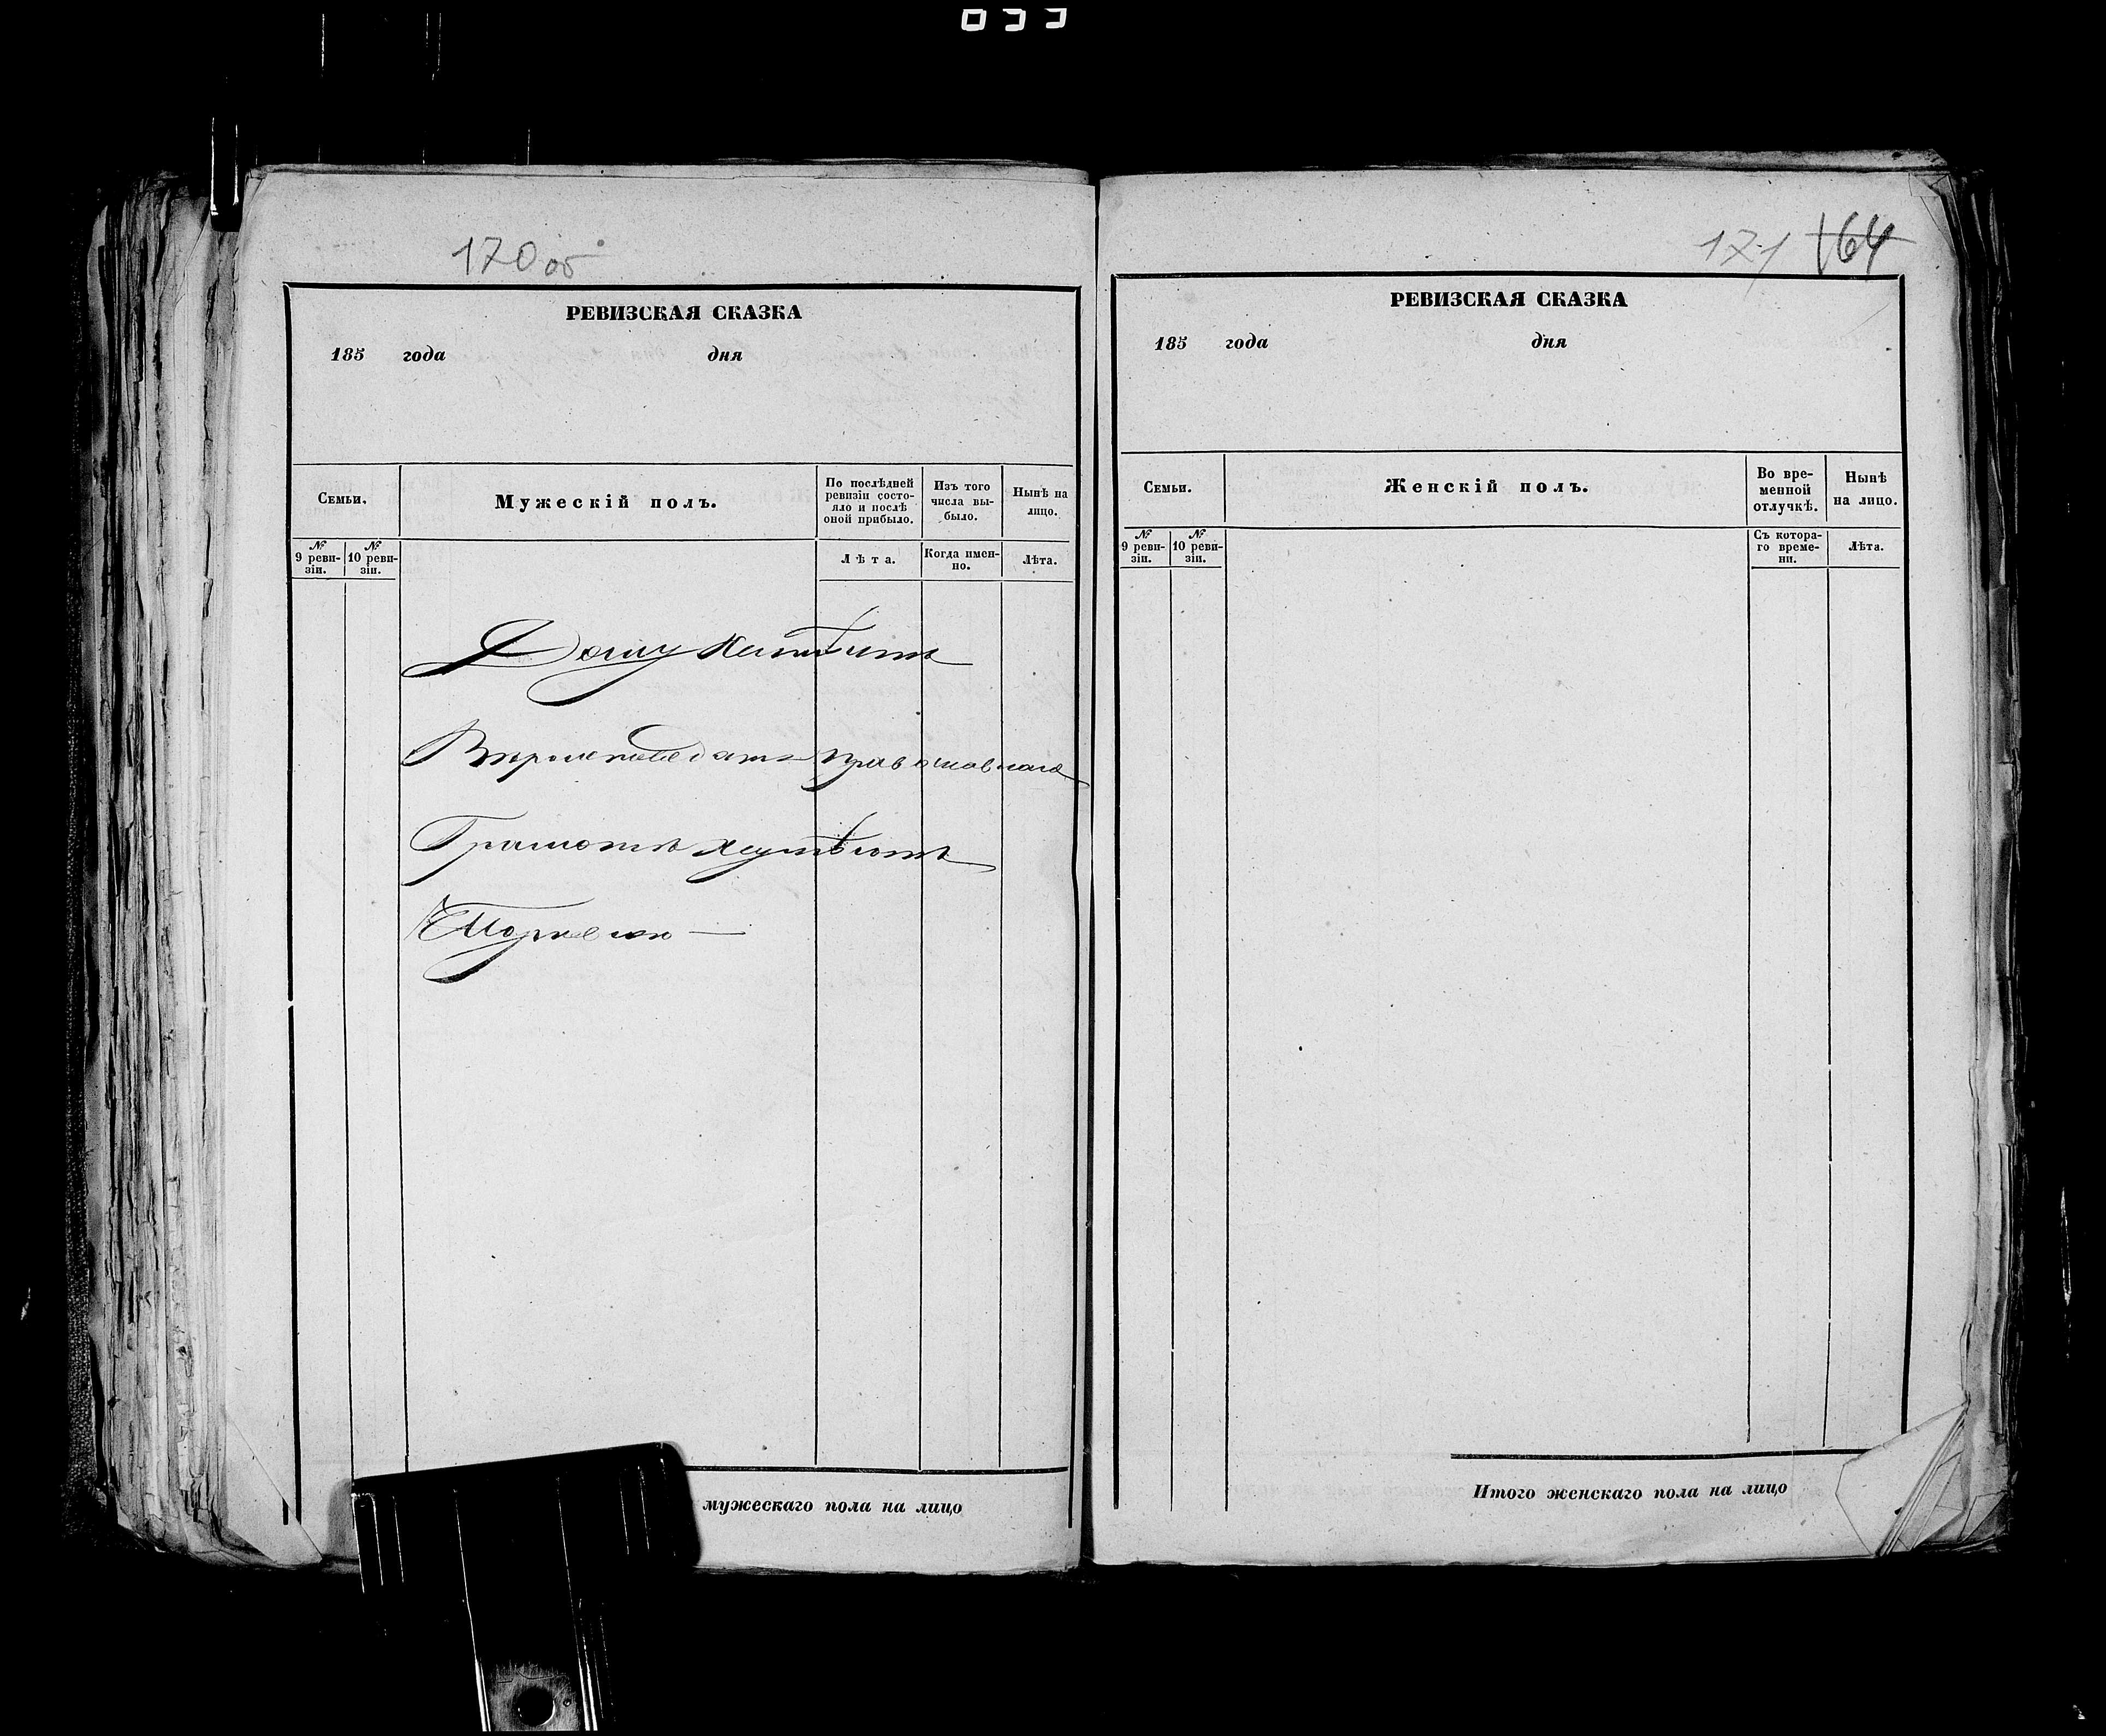 033
170 об
РЕВИЗСКАЯ СКАЗКА
185 года дня
Семьи.
Мужескій полъ.
По послѣдней ревизіи состояло и послѣ оной прибыло.
Изъ того числа выбыло.
Нынѣ на лицо.
№ 9 ревизіи.
№ 10 ревизіи.
Лѣта.
Когда именно.
Лѣта.
Дому неимѣитъ
Вѣроисповеданія православнаго
Грамотѣ неумѣютъ
мужескаго пола на лицо
171 164
РЕВИЗСКАЯ СКАЗКА
185 года дня
Семьи.
Женскій полъ.
Во временной отлучкѣ.
Нынѣ на лицо.
№ 9 ревизіи.
№ 10 ревизіи.
Съ котораго времени.
Лѣта.
Итого женскаго пола на лицо